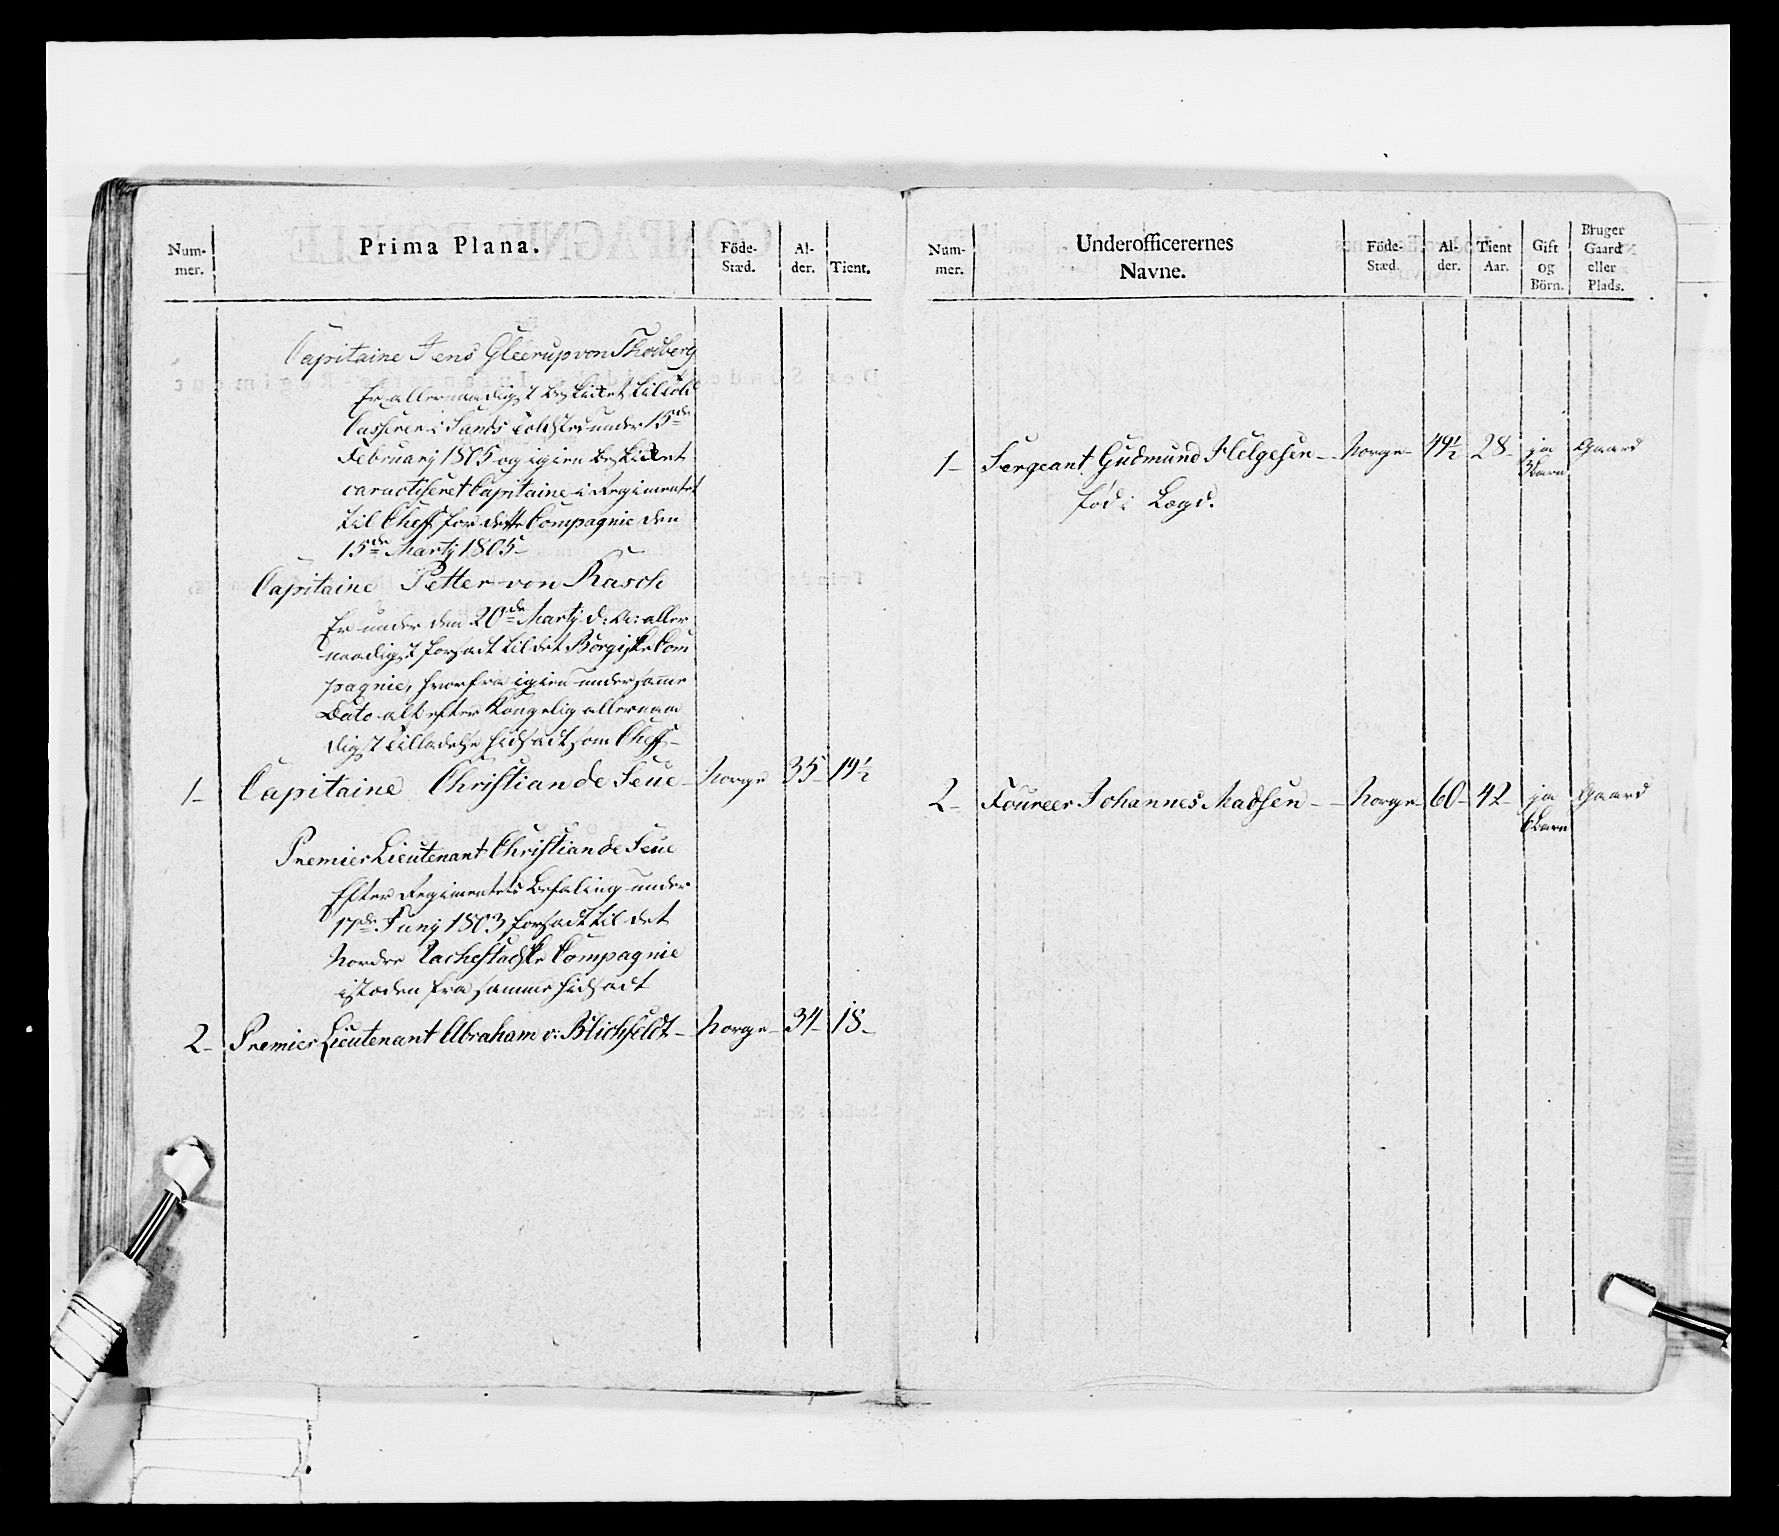 Num-
mer.
Prima Plana.
Föde-
Stæd.
Al-
der.
Tient.
Capitaine Jens Gleerup von Thodberg
Er allernaadigst beskicket til
Casserer i Sunds under 15de
Februarij 1805 og igien beskicket
caracteseret Capitaine i Regimentet
til Cheff for dette Compagnie den
15de Martij 1805
Capitaine Petter von Rasch
Er under den 20de Martij d: A: aller
naadigst forsadt til det Borgiske Com
pagnie, hvorfra igien under samme
Dato alt efter Kongelig allernaa
digst Tilladelse hidsadt som Cheff
1 Capitaine Christian de Seue Norge 35 19½
Premier Lieutenant Christian de Seue
Efter Regimentets Befaling under
17de Junij 1803 forsadt til det
Nordre Compagnie
istæden fra samme hidsadt
2 Premier Lieutenant Abraham v: Blichfeldt Norge 34 18
Num-
mer.
Underofficerernes
Navne.
Föde-
Stæd.
Al-
der.
Tient
Aar.
Gift
og
Börn.
Bruger
Gaard
eller
Plads.
1 Sergeant Gudmund Helgesen Norge 49½ 28 ja Gaard
3 Barn
fød i Lægd.
2 Foureer Johannes Madsen Norge 60 42 ja Gaard
6 Barn